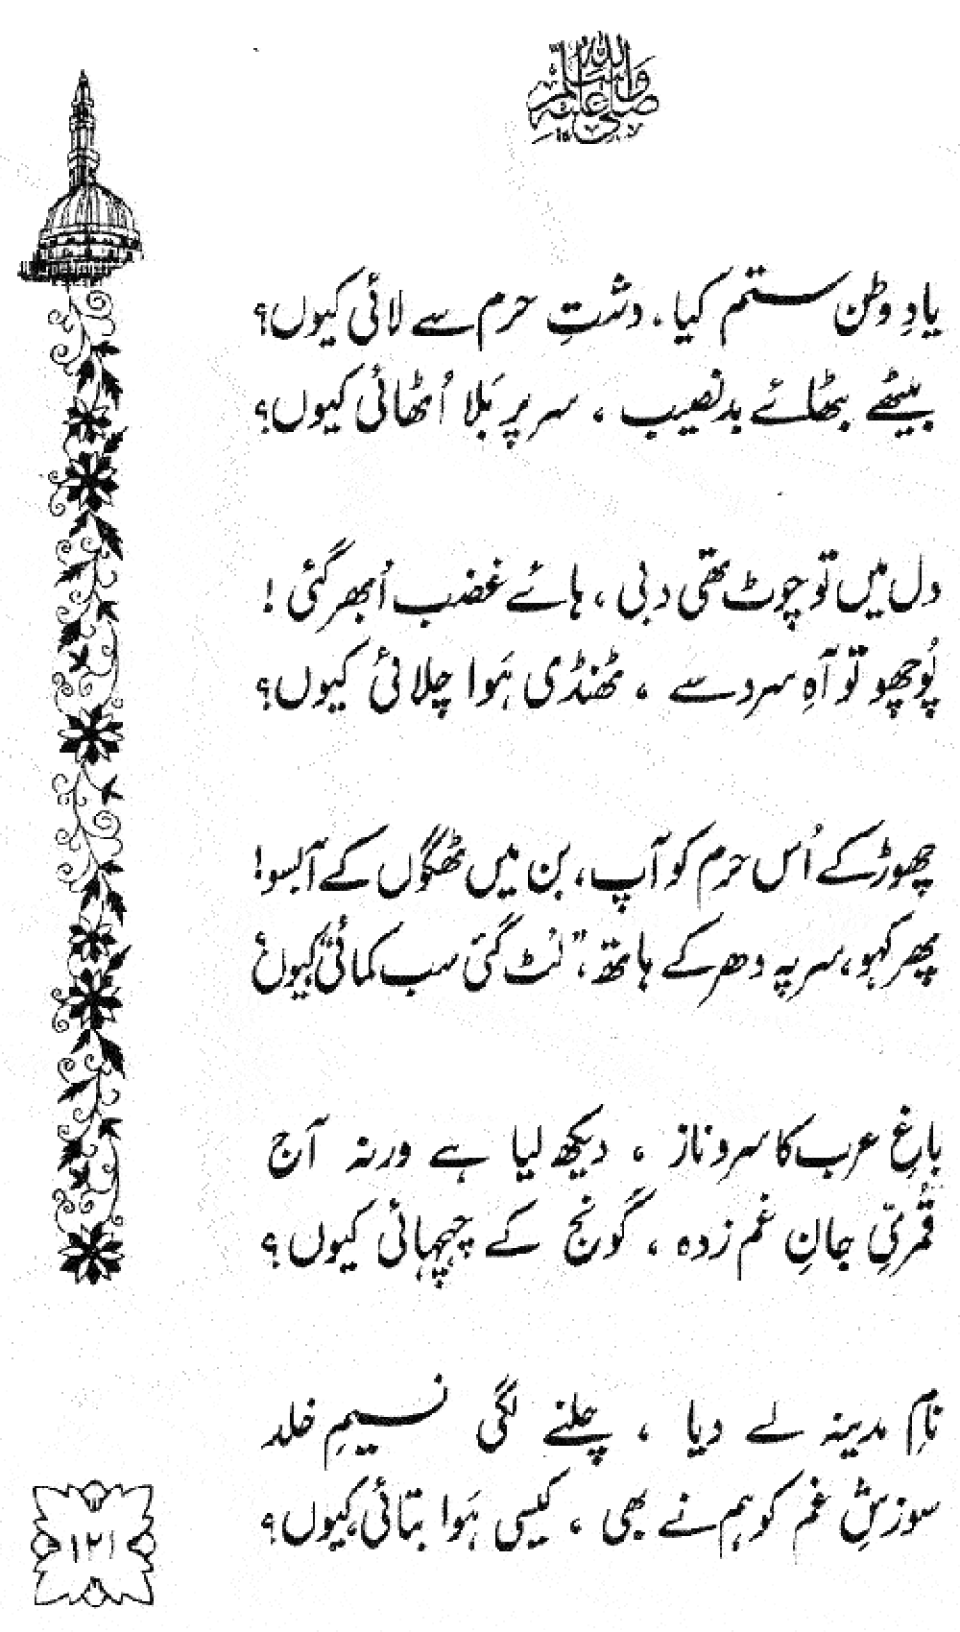 صلی اللہ علیہ وسلم
یادِ وطن ستم کیا، دشتِ حرم سے لائی کیوں؟
بیٹھے بٹھائے بدنصیب، سر پر بَلا اُٹھائی کیوں؟
دل میں تو چوٹ تھی دبی، ہائے غضب اُبھر گئی!
پُوچھو تو آہِ سرد سے، ٹھنڈی ہَوا چلائی کیوں؟
چھوڑ کے اُس حرم کو آپ، بن میں ٹھگوں کے آ بسو!
پھر کہو، سر پہ دھر کے ہاتھ، ”لُٹ گئی سب کمائی“ کیوں؟
باغِ عرب کا سروِ ناز، دیکھ لیا ہے ورنہ آج
قُمریِّ جانِ غم زدہ، گونج کے چہچہائی کیوں؟
نامِ مدینہ لے دیا، چلنے لگی نسیمِ خلد
سوزشِ غم کو ہم نے بھی، کیسی ہَوا بتائی کیوں؟
۱۲۱